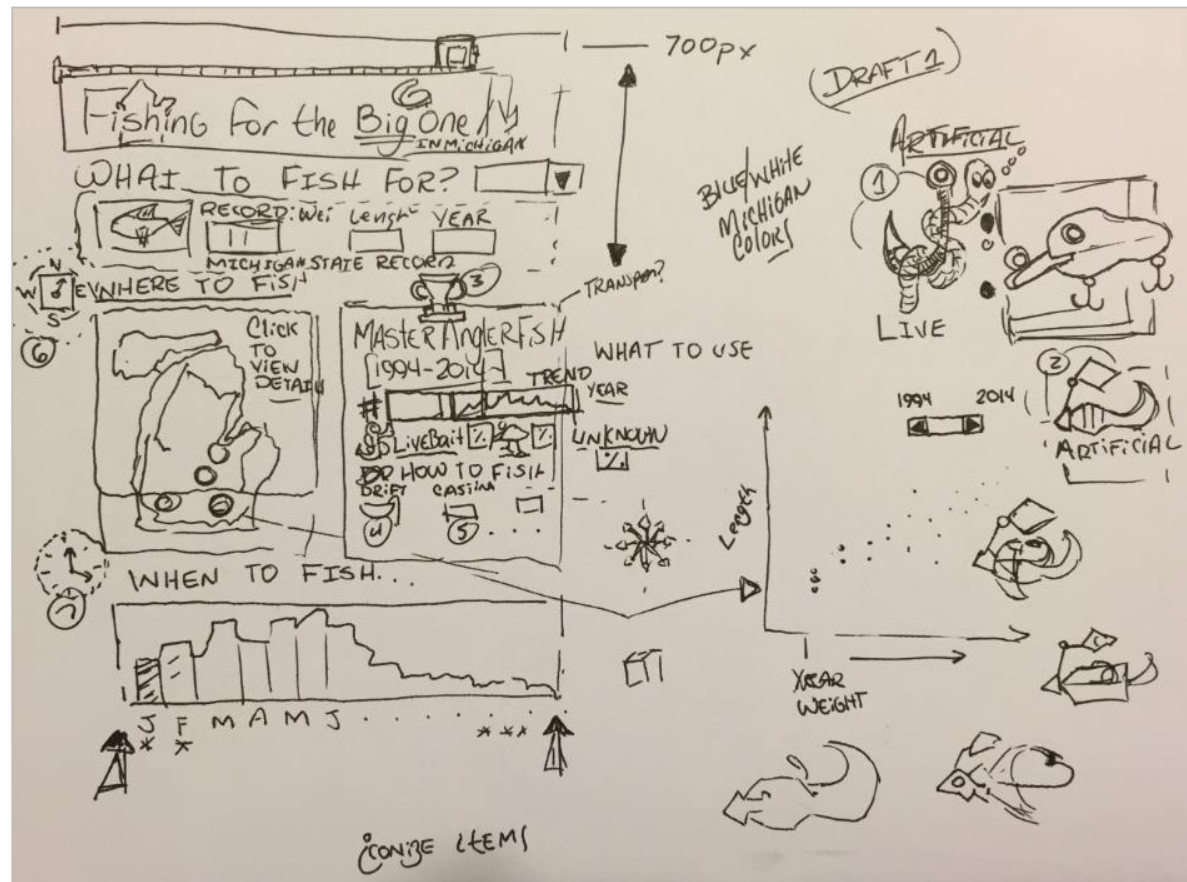 700px
DRAFT 1
Fishing for the Big One
IN MICHIGAN
WHAT TO FISH FOR?
RECORD: Wei Lenght YEAR
MICHIGAN STATE RECORD
N
W E
S
WHERE TO FISH
6
Click
TO
VIEW
DETAIL
3
TRANSPER?
MASTER ANGLER FISH
[1994-2014]
TREND
#
YEAR
LIVE Bait % %
UNKNOWN
%
HOW TO FISH
DRIFT
4 5
WHEN TO FISH...
7
J F M A M J . . . . . .
* * * * *
iCONIZE ITEMS
BLUE/WHITE
MICHIGAN
COLORS
WHAT TO USE
ARTIFICIAL
1
LIVE
2
ARTIFICIAL
1994 2014
Length
WEIGHT